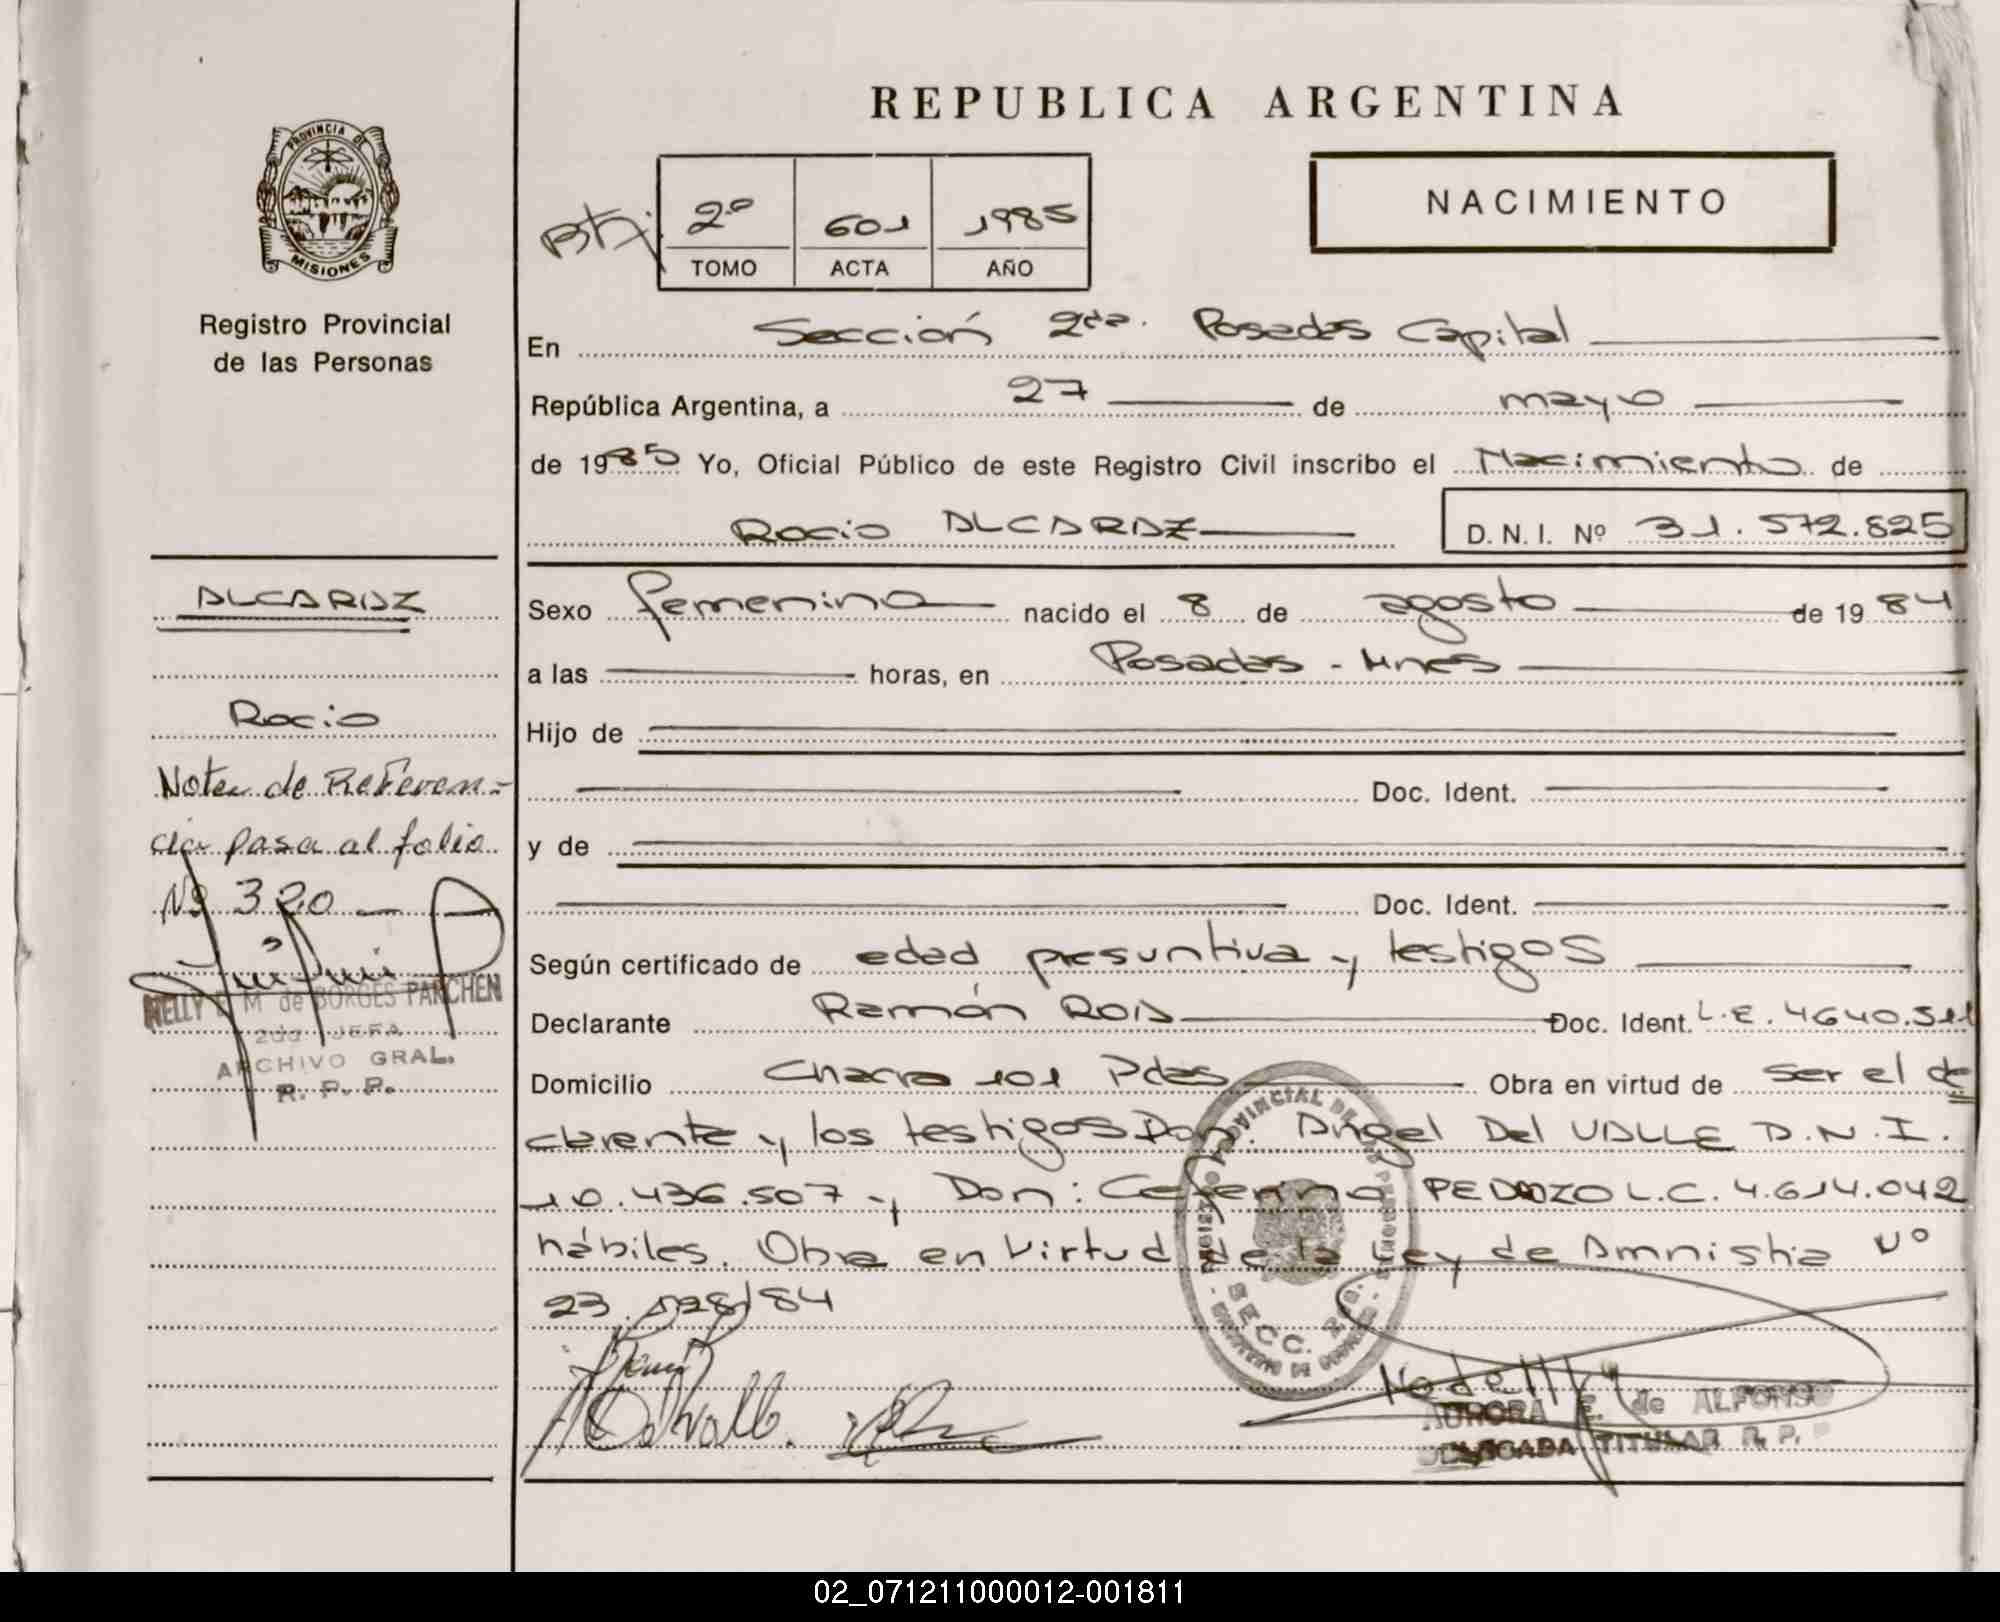 REPUBLICA ARGENTINA
PROVINCIA DE
MISIONES
Registro Provincial
de las Personas
2º 601 1985
TOMO ACTA AÑO
NACIMIENTO
En Sección 2da. Posadas Capital
República Argentina, a 27 de mayo
de 1985 Yo, Oficial Público de este Registro Civil inscribo el Nacimiento de
Rocio ALCARAZ D. N. I. Nº 31.572.825
Sexo femenino nacido el 8 de agosto de 1984
a las horas, en Posadas - Mnes
Hijo de
Doc. Ident.
y de
Doc. Ident.
Según certificado de edad presuntiva y testigos
Declarante Ramón ROA Doc. Ident. L.E. 4640.511
Domicilio Chacra 101 Pdas Obra en virtud de ser el de
clarente y los testigos Don: Angel Del VALLE D.N.I.
10.436.507 y Don: Ceferino PEDOZO L.C. 4.614.042
hábiles. Obra en virtud de la Ley de Amnistia Nº
23.128/84
ALCARAZ
Rocio
Nota de Referen-
cia pasa al folio
Nº 320
NELLY E M de BORGES PANCHEN
2da JEFA
ARCHIVO GRAL.
R. P. P.
SECC. 2
AURORA E. de ALFONSO
DELEGADA TITULAR R. P.
02_071211000012-001811